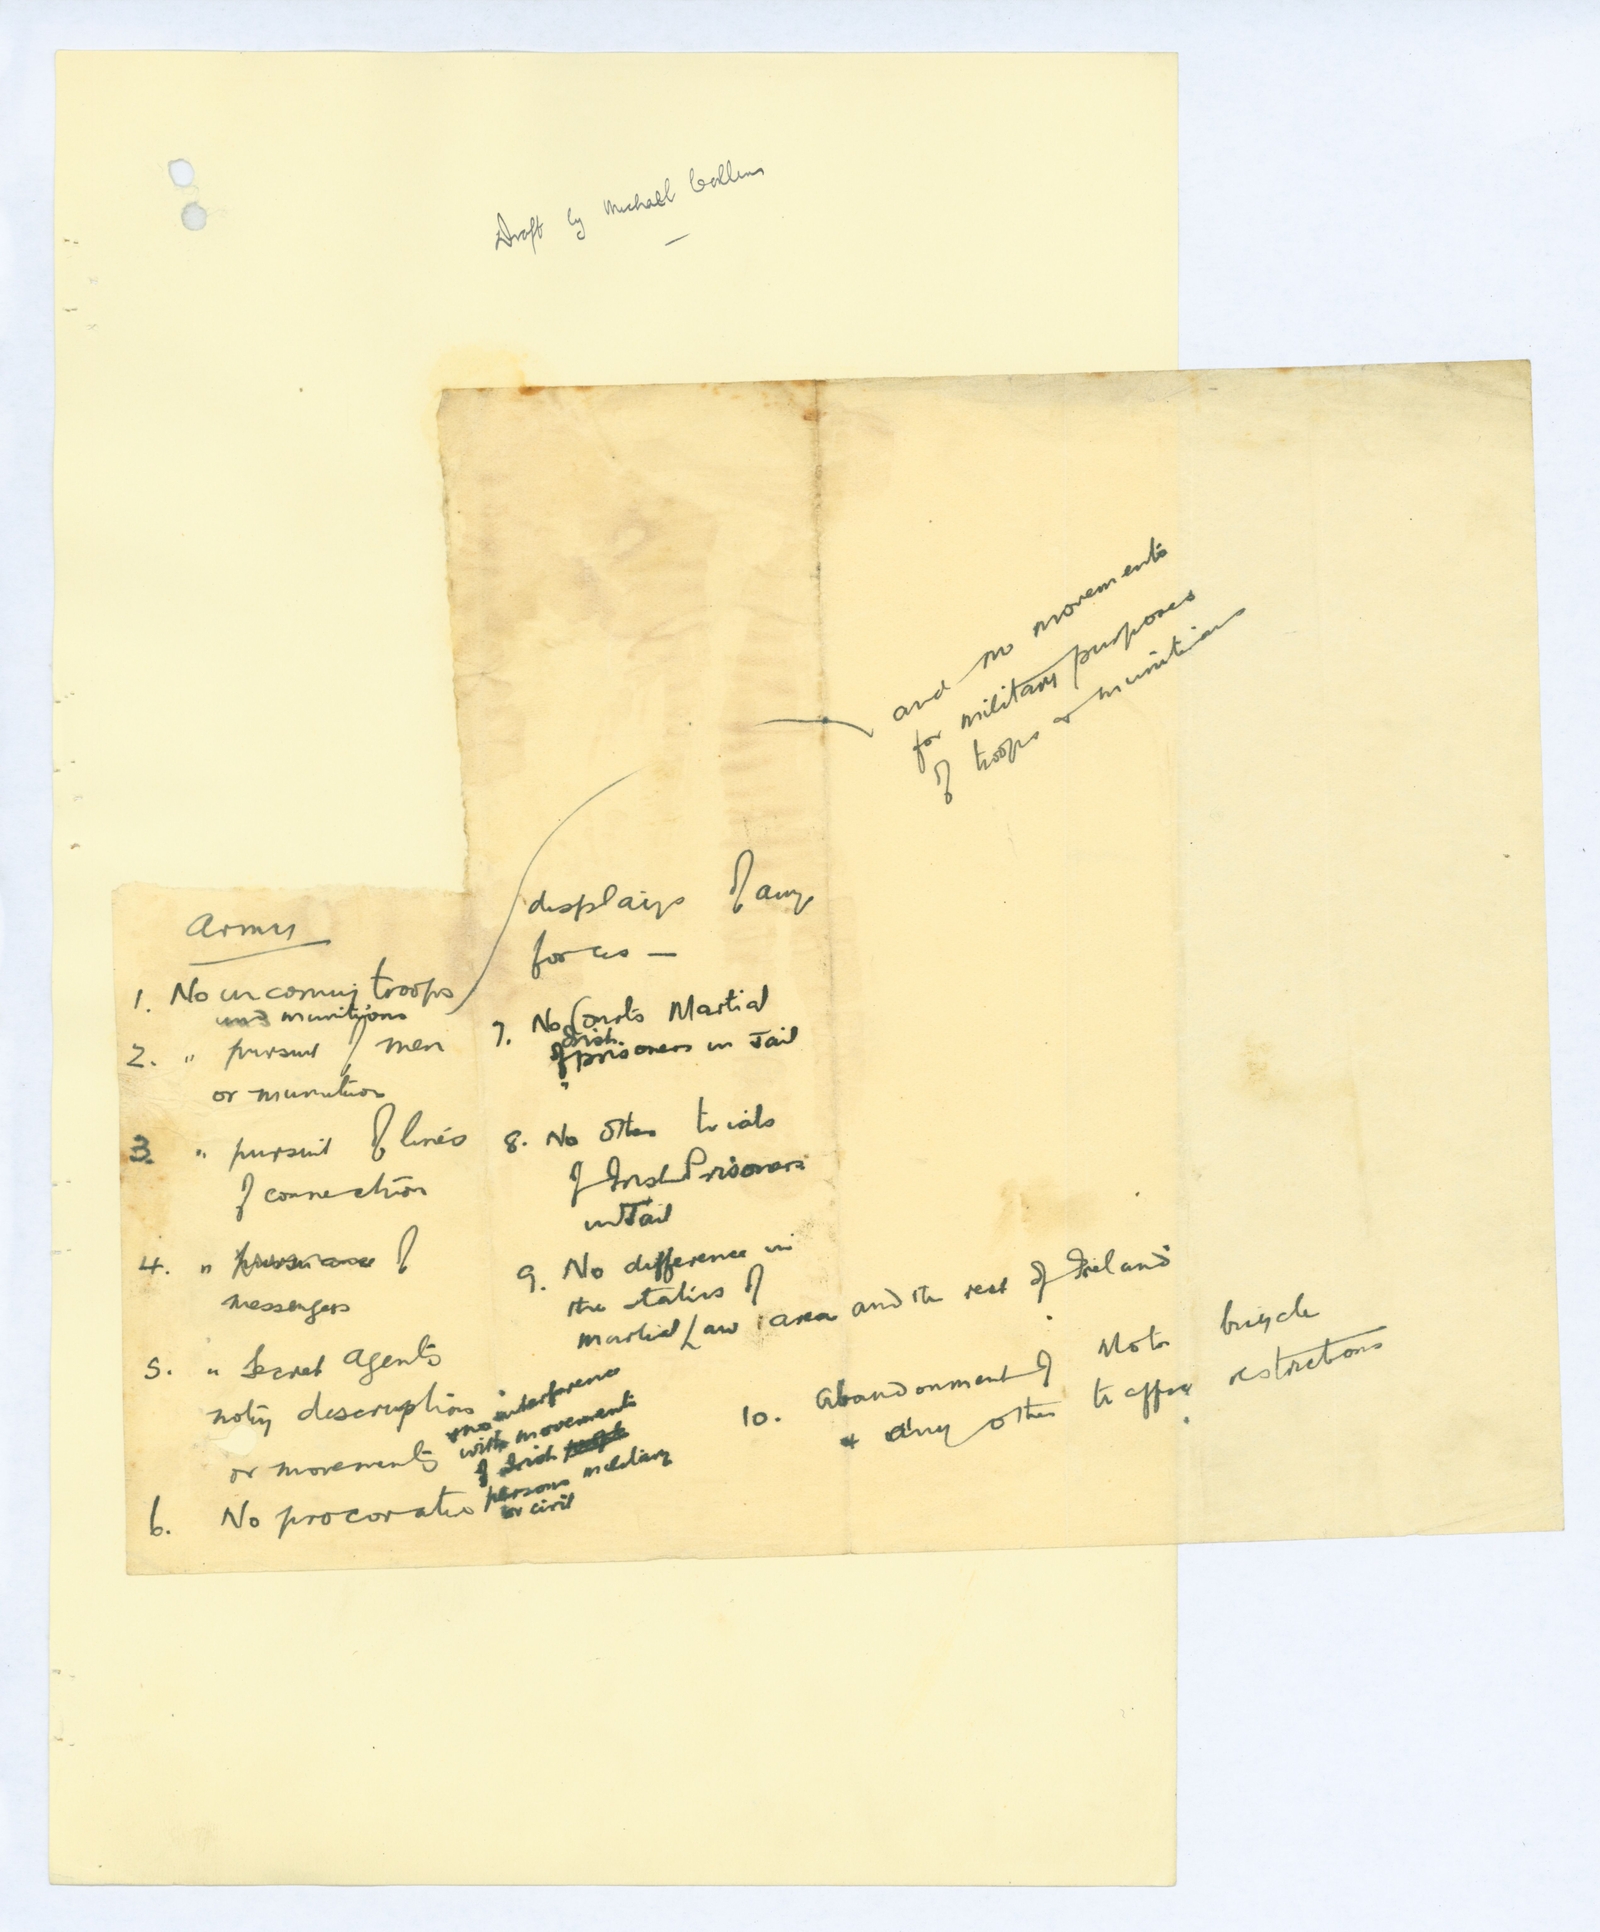 Draft by Michael Collins
Army
1. No incoming troops
and munitions
and no movements
for military purposes
of troops or munitions
2. " pursuit of men
or munition
3. " pursuit of lines
of connection
4. " pursuance of
messengers
5. " Secret Agents
noting descriptions
or movements
& no interference
with movements
of Irish people
persons military
or civil
6. No procorative
displays of any
forces —
7. No Courts Martial
of Irish
prisoners in Jail
8. No other trials
of Irish Prisoners
in Jail
9. No difference in
the status of
Martial Law area and the rest of Ireland
10. Abandonment of Motor bicycle
& any other traffic restrictions